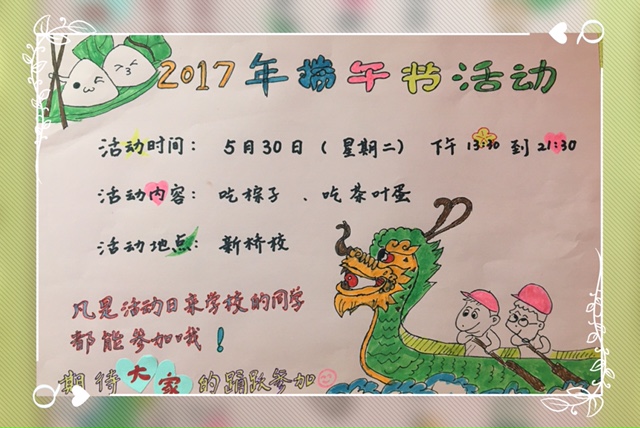 2017年端午节活动
活动时间： 5月30日（星期二） 下午13:30到21:30
活动内容：吃棕子、吃茶叶蛋
活动地点：新桥校
凡是活动日来学校的同学
都能参加哦！
期待大家的踊跃参加